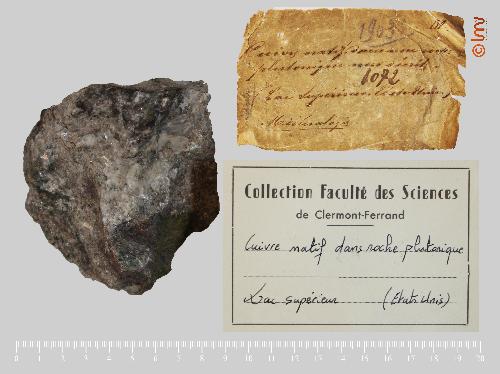 © lmv
1903
1092
Cuivre natif dans une roche
plutonique
Lac Supérieur
Minéralogie
Collection Faculté des Sciences
de Clermont-Ferrand
Cuivre natif dans roche plutonique
Lac supérieur (Etats Unis)
0 1 2 3 4 5 6 7 8 9 10 11 12 13 14 15 16 17 18 19 20